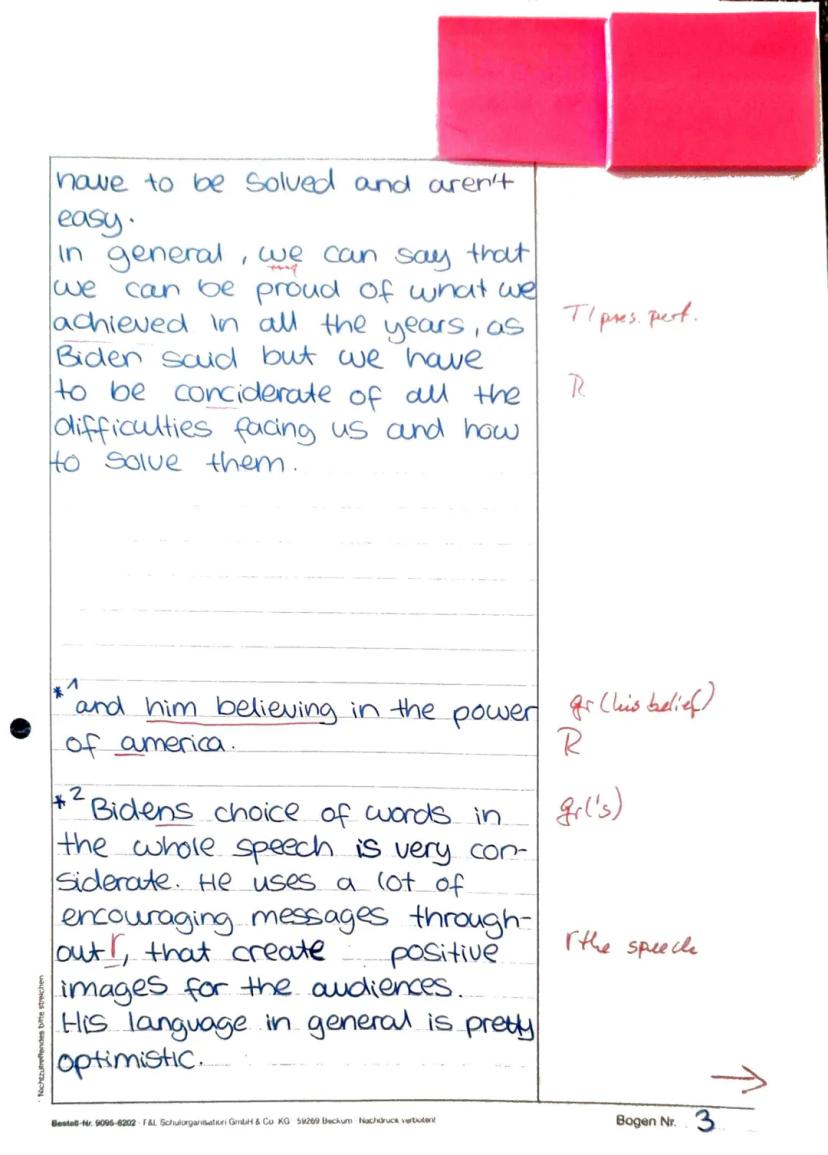 have to be solved and aren't
easy.
In general, we can say that
we can be proud of what we
achieved in all the years, as
T/pres. perf.
Biden said but we have
to be conciderate of all the
R
difficulties facing us and how
to solve them.
*1 and him believing in the power
gr (his belief)
of america.
R
*2 Bidens choice of words in
gr('s)
the whole speech is very con-
siderate. He uses a lot of
encouraging messages through-
out Γ, that create positive
Γ the speech
images for the audiences.
His language in general is pretty
optimistic.
→
* Nichtzutreffendes bitte streichen
Bestell-Nr. 9095-6202 · F&L Schulorganisation GmbH & Co KG 59269 Beckum Nachdruck verboten!
Bogen Nr. 3